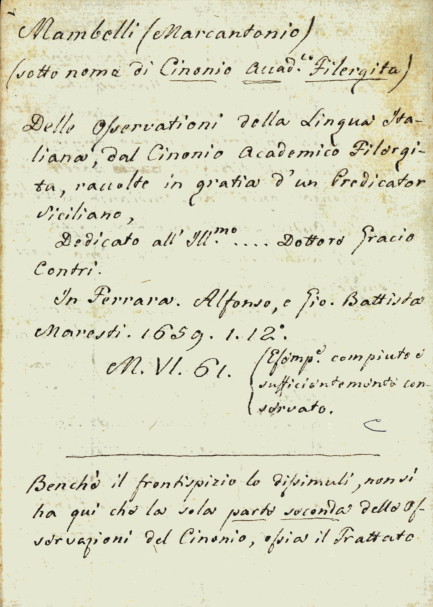 Mambelli (Marcantonio)
(sotto nome di Cinonio Accad.co Filergita)
Delle Osservationi della Lingua Ita-
liana, dal Cinonio Academico Filergi-
ta, raccolte in gratia d'un Predicator
Siciliano,
Dedicato all'Ill.mo .... Dottore Gracio
Contri.
In Ferrara. Alfonso, e Gio. Battista
Maresti. 1659. 1. 12°.
M. VI. 61.
(Esemp.e compiuto e
sufficientemente con-
servato.
C
Benchè il frontispizio lo dissimuli, non si
ha qui che la sola parte seconda delle Os-
servazioni del Cinonio, ossia il Trattato